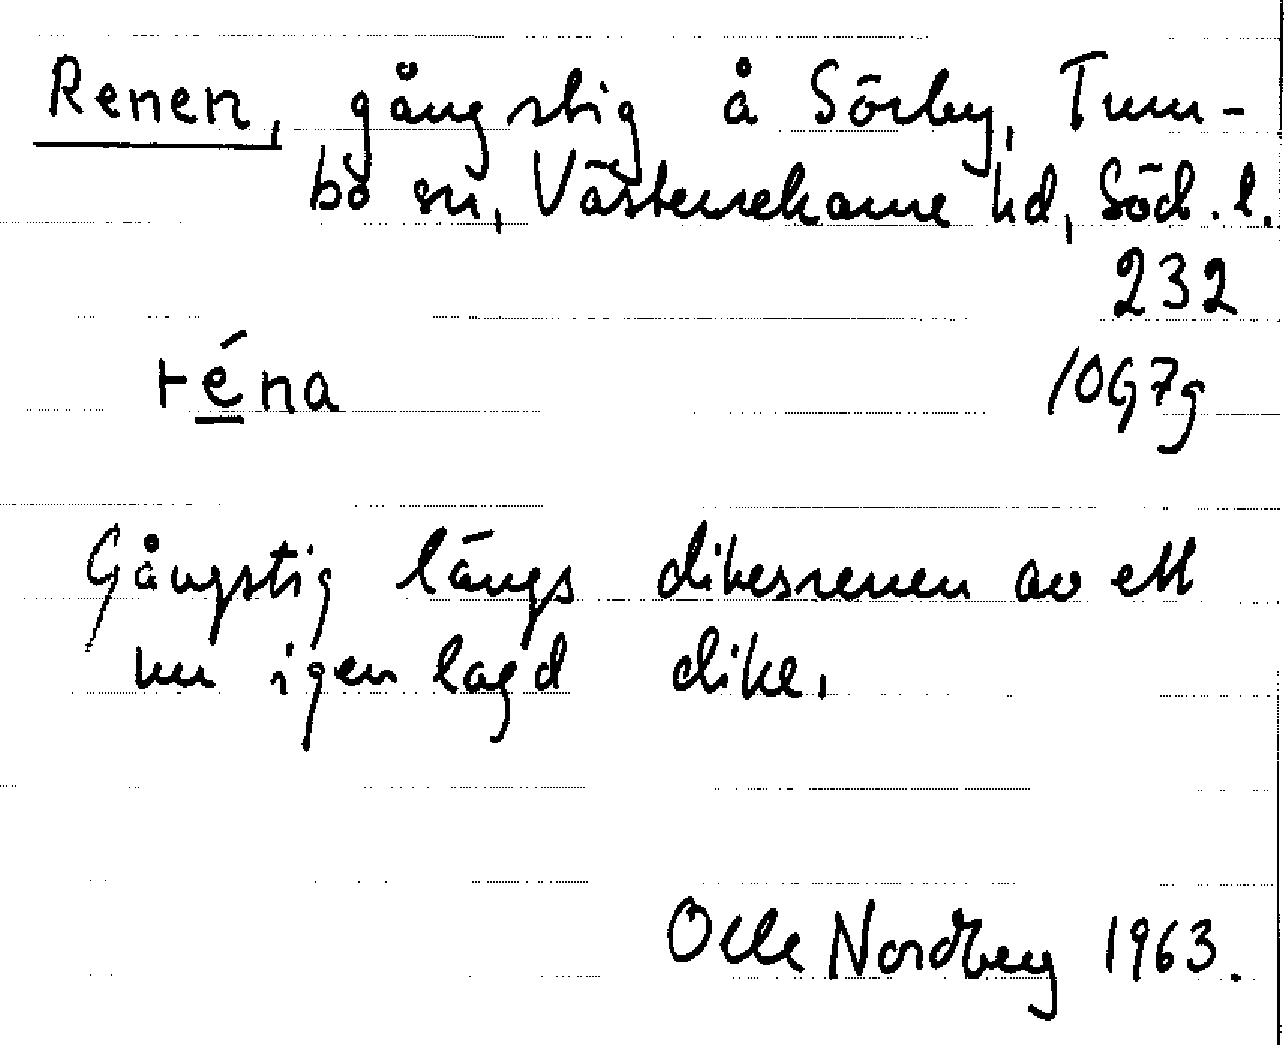 Renen, gångstig å Sörby, Tum-
bo sn, Västerrekarne hd, Söd. l.
232
réna 10G7g
Gångstig längs dikesrenen av ett
nu igenlagd dike.
Olle Nordberg 1963.